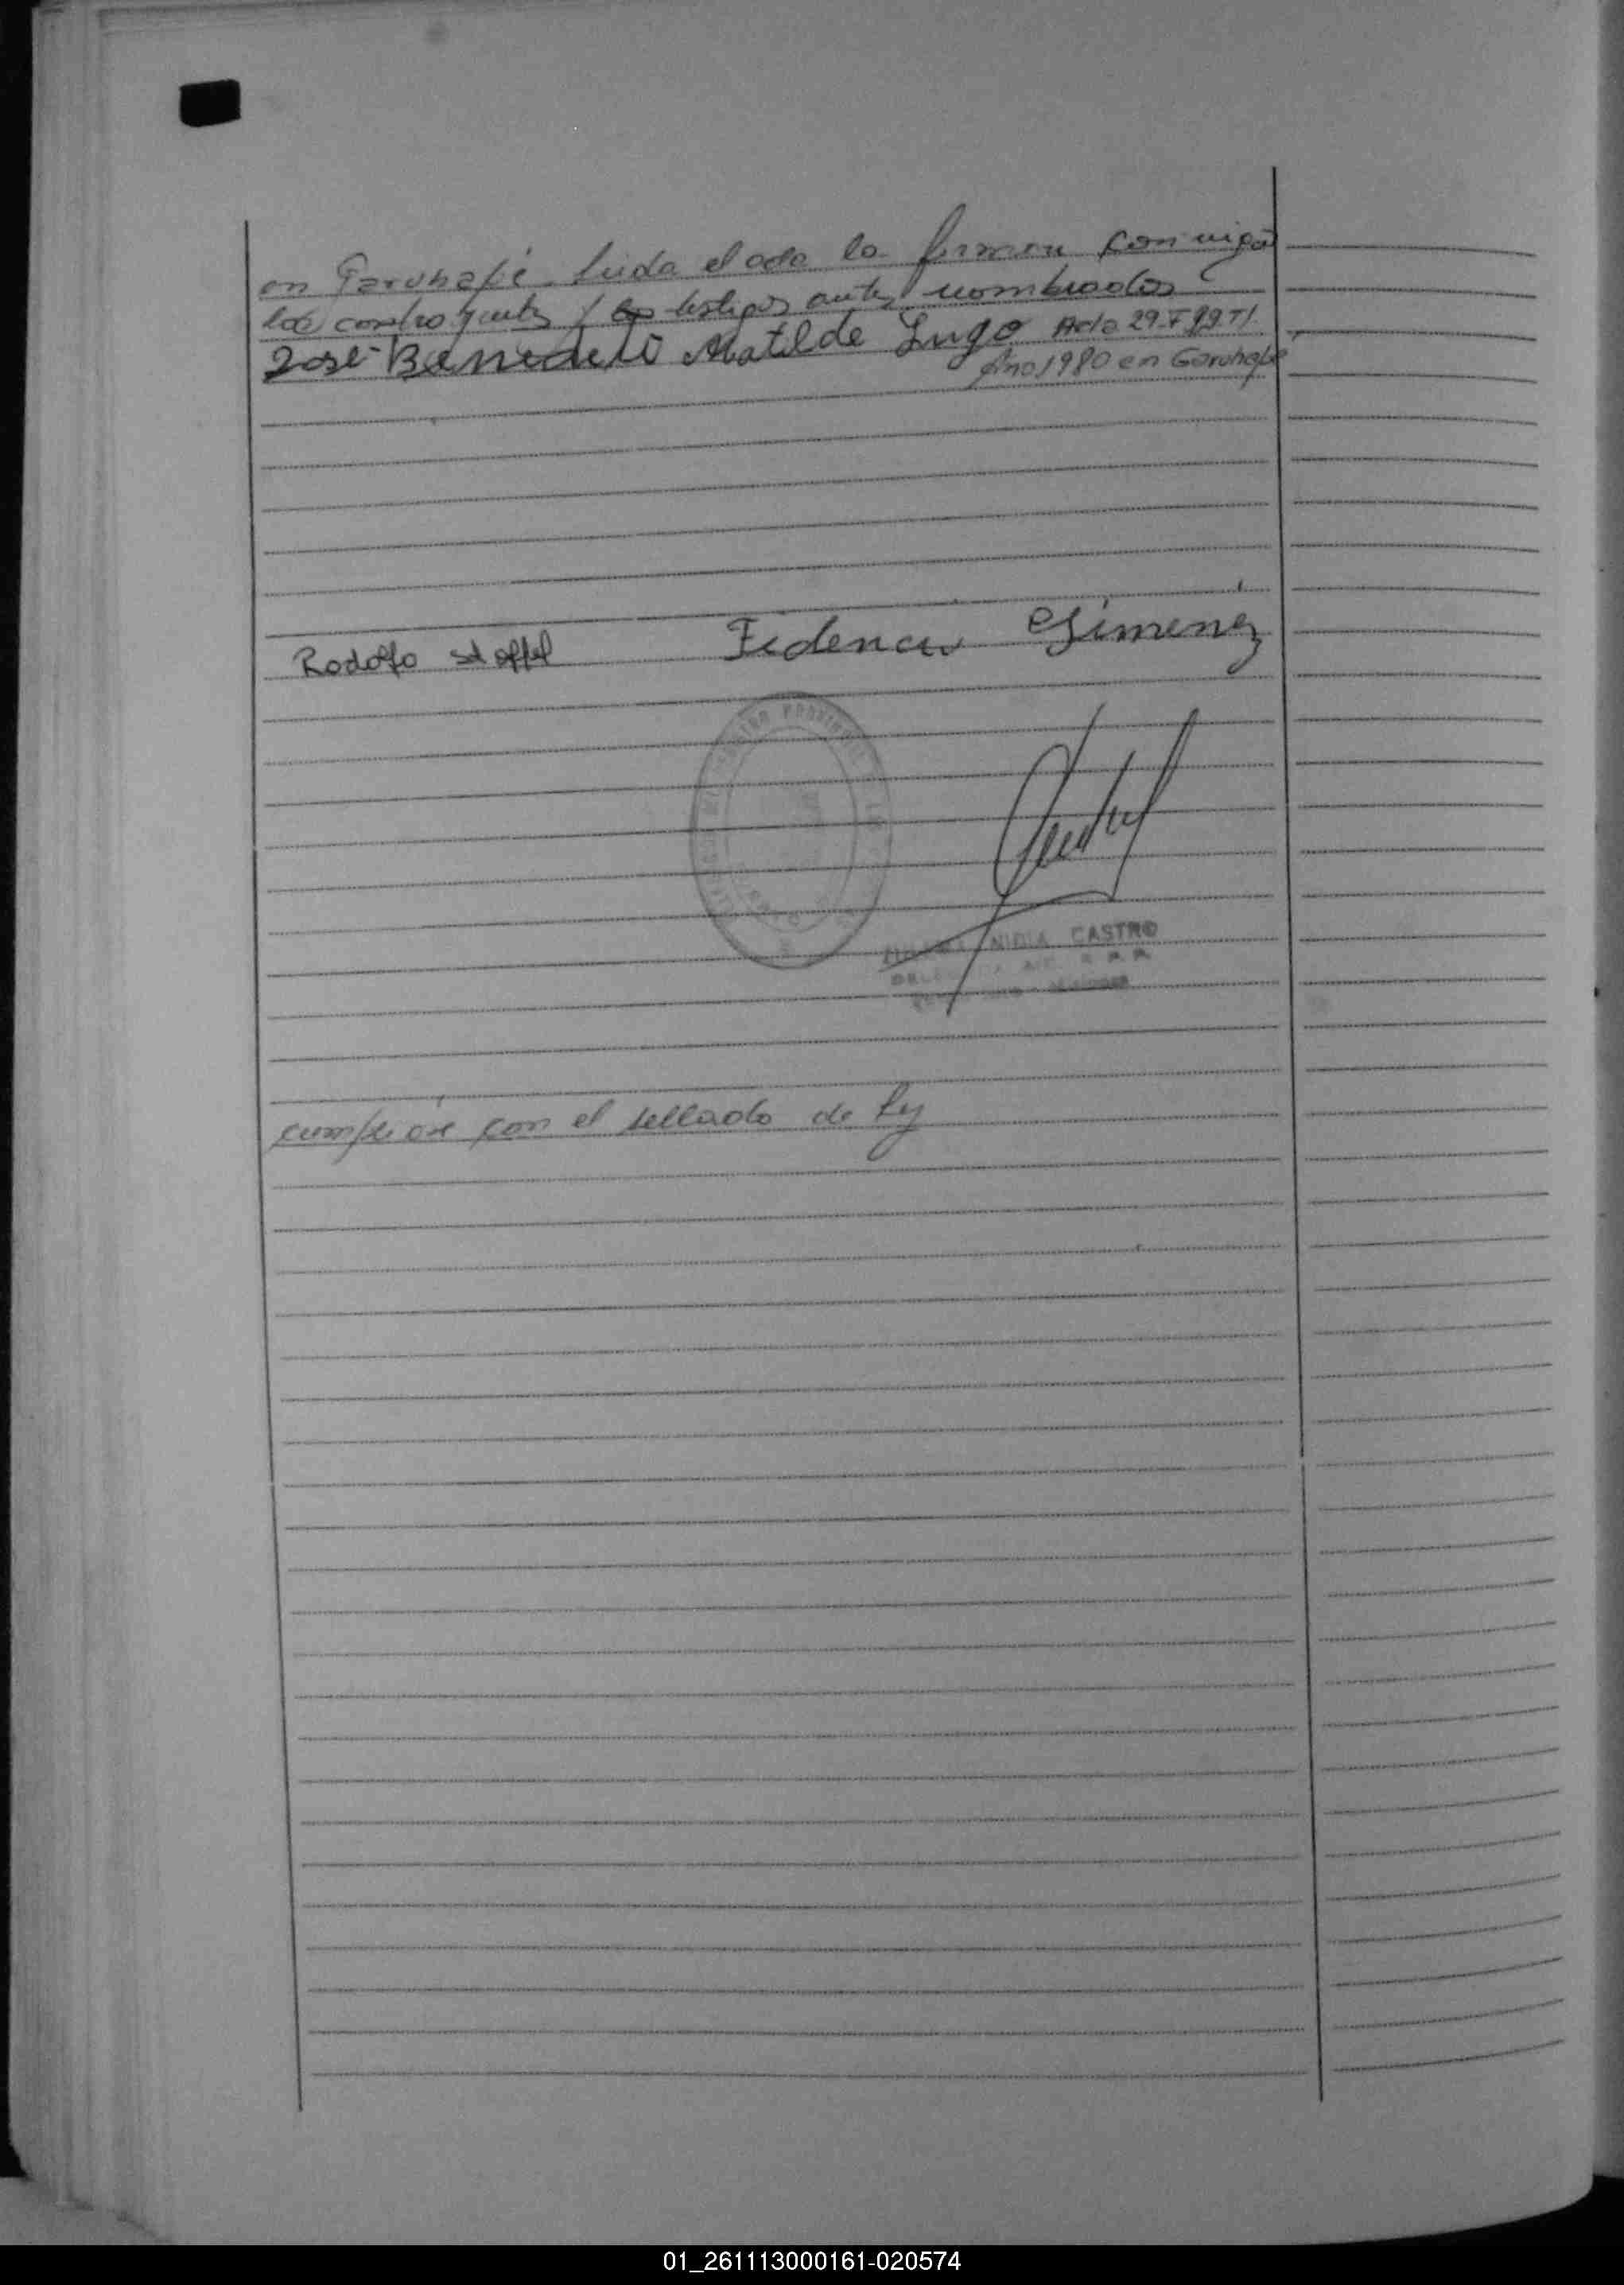 en Garuhapé. Leida el acta la firman conmigo
los contrayentes y los testigos antes nombrados
José Benedeti Matilde Lugo Acta 29. F 29. T1.
Año 1980 en Garuhapé
Rodolfo Stoffel Federico Gimenez
PROVINCIAL
NIDIA CASTRO
cumplióse con el sellado de ley
01_261113000161-020574